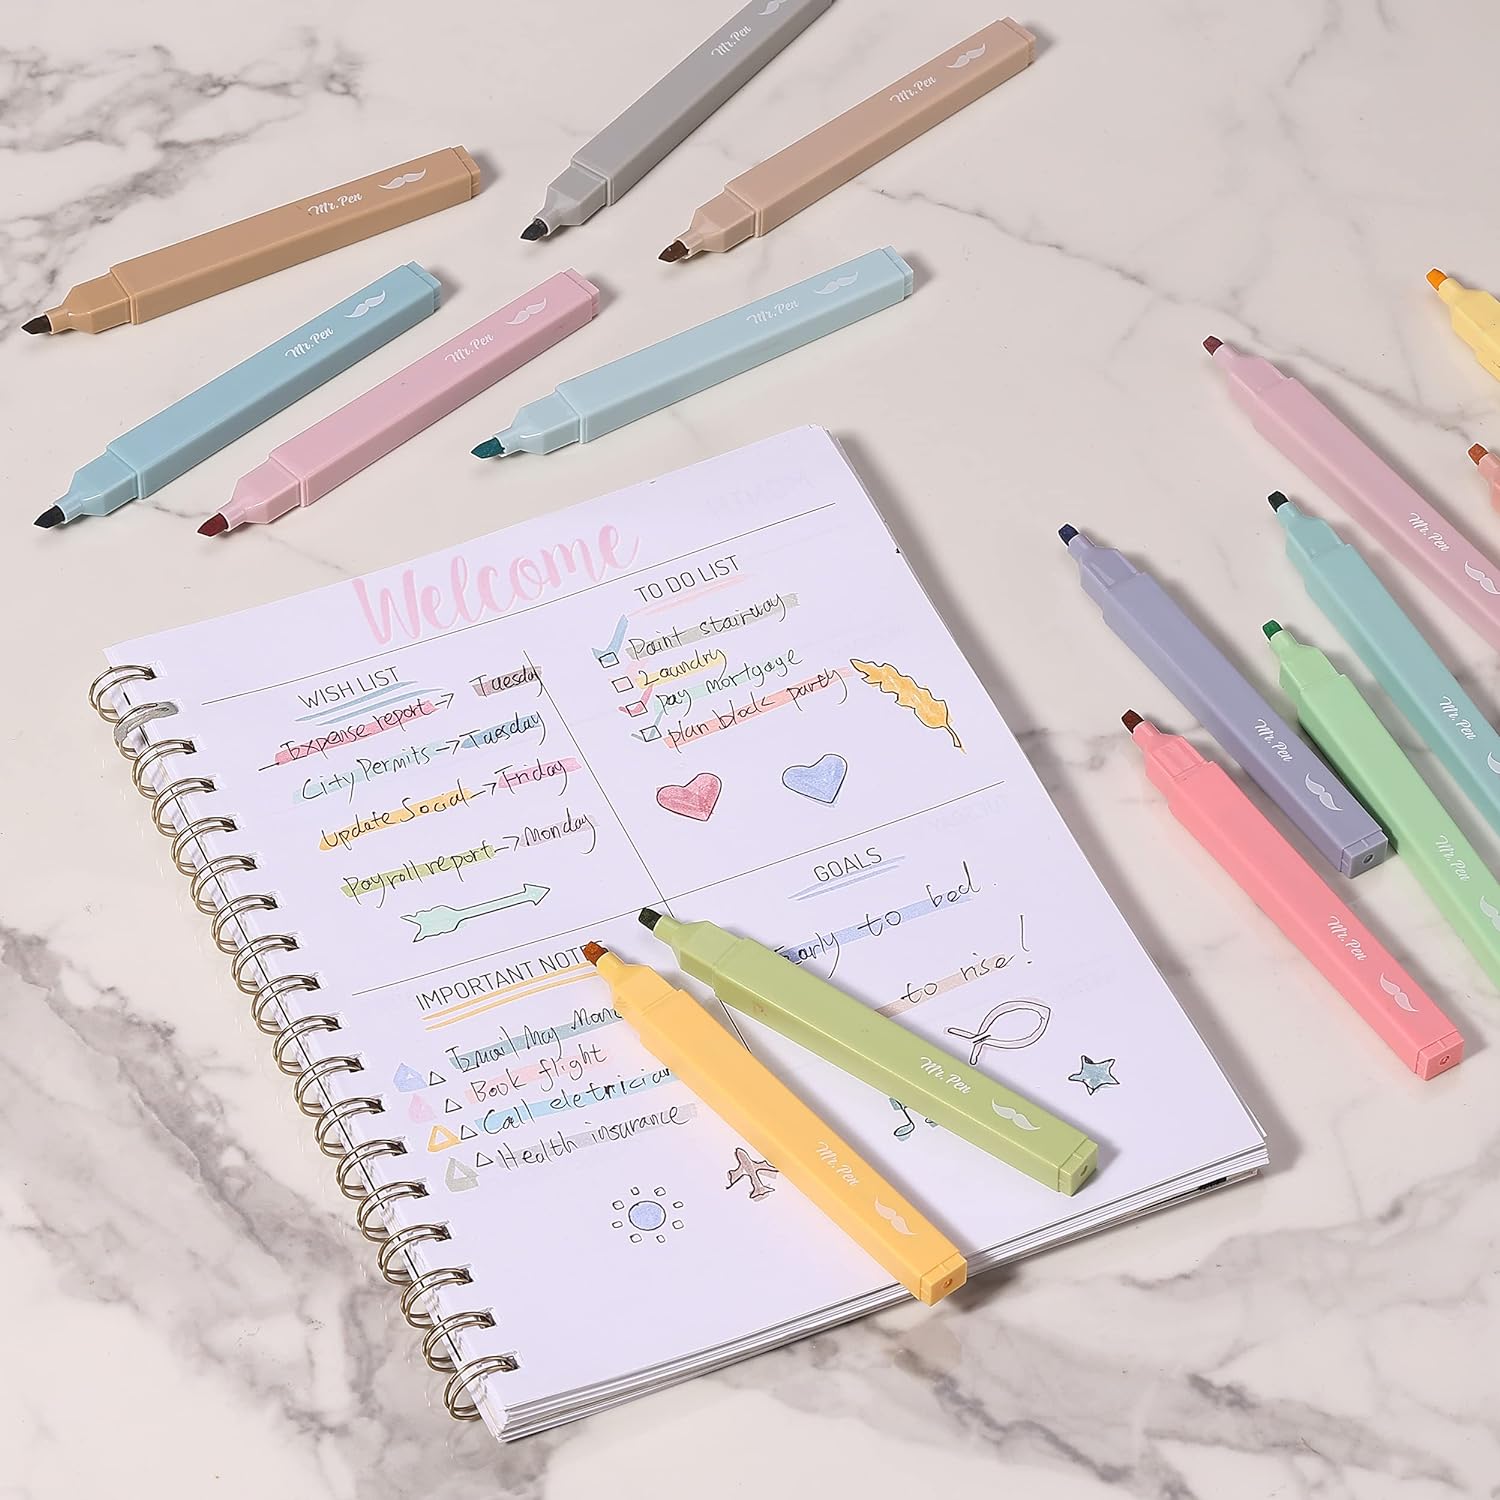 Mr.Pen
Mr.Pen
Mr.Pen
Mr.Pen
Mr.Pen
Mr.Pen
Welcome
WISH LIST
Expense report → Tuesday
City Permits → Tuesday
Update Social → Friday
Payroll report → Monday
TO DO LIST
Paint stairway
Laundry
Pay mortgage
plan block party
GOALS
Early to bed.
to rise!
IMPORTANT NOTES
Email My
Book flight
Call eletrician
Health insurance
Mr.Pen
Mr.Pen
Mr.Pen
Mr.Pen
Mr.Pen
Mr.Pen
Mr.Pen